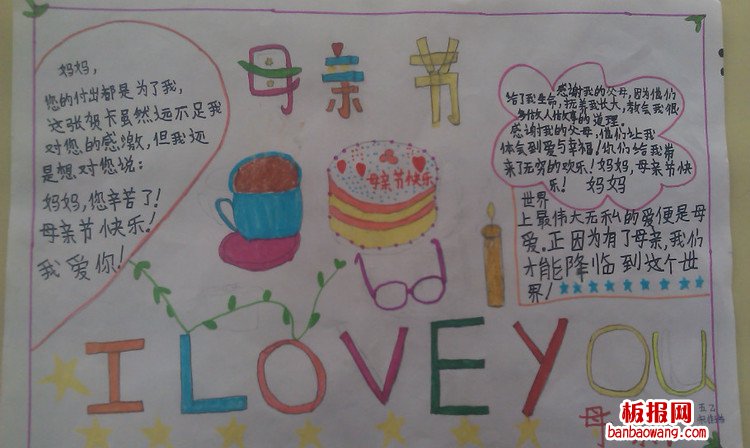 母亲节
妈妈,
您的付出都是为了我,
这张贺卡虽然远不足我
对您的感激,但我还
是想对您说:
妈妈,您辛苦了!
母亲节快乐!
我爱你!
母亲节快乐
感谢我的父母,因为他们
给了我生命,抚养我长大,教会我很
多做人做事的道理。
感谢我的父母,他们让我
体会到爱与幸福!你们给我带
来了无穷的欢乐!妈妈,母亲节快
乐! 妈妈
世界
上最伟大无私的爱便是母
爱。正因为有了母亲,我们
才能降临到这个世
界!
I LOVE YOU
五乙
母
板报网
banbaowang.com